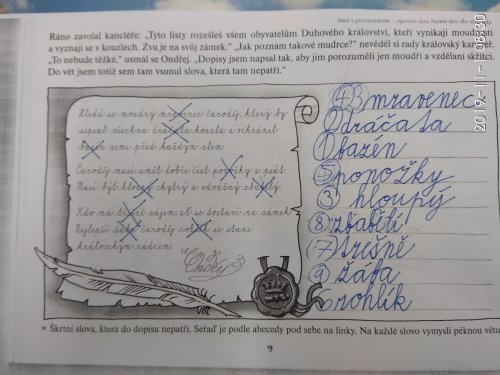 Čtení s porozuměním – význam slov; řazení slov dle abecedy
Ráno zavolal kancléře: „Tyto listy rozešleš všem obyvatelům Duhového království, kteří vynikají moudrostí
a vyznají se v kouzlech. Zvu je na svůj zámek." „Jak poznám takové mudrce?" nevěděl si rady královský kancléř.
„To nebude těžké," usmál se Ondřej. „Dopisy jsem napsal tak, aby jim porozuměli jen moudří a vzdělaní skřítci.
Do vět jsem totiž sem tam vsunul slova, která tam nepatří."
Hledá se moudrý mravenec čaroděj, který by
sepsal všechna dráčata kouzla a ochránil
bazén zemi před každým zlem.
Čaroděj musí umět dobře číst ponožky a psát.
Musí být hloupý chytrý a odvážný zbabělý.
Kdo má třešně zájem, ať se dostaví na zámek.
Nejlepší žába čaroděj rohlík se stane
královským rádcem.
Ondřej
4 B mravenec
2 dráčata
1 bazén
5 ponožky
3 hloupý
8 zbabělí
7 třešně
9 žába
6 rohlík
* Škrtni slova, která do dopisu nepatří. Seřaď je podle abecedy pod sebe na linky. Na každé slovo vymysli pěknou větu
9